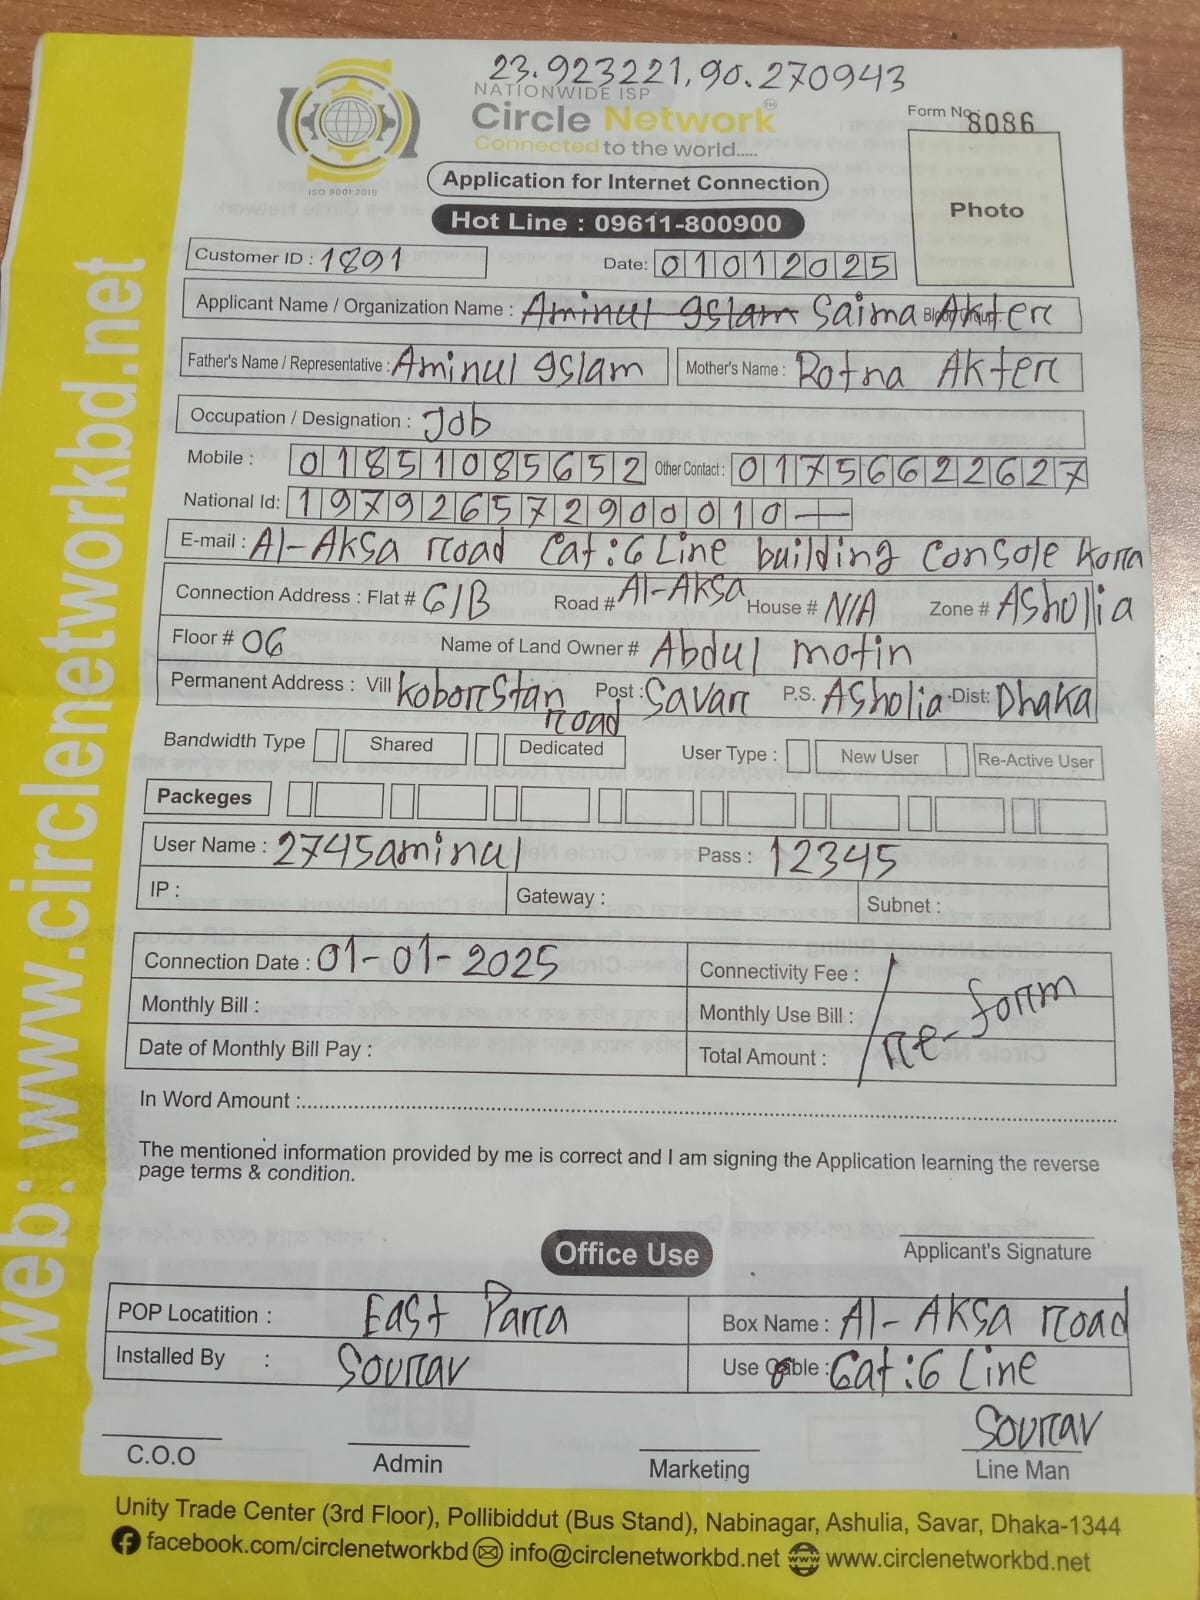 23.923221,90.270943
NATIONWIDE ISP
Circle Network™
Connected to the world.....
ISO 9001:2015
Form No: 8086
Photo
Application for Internet Connection
Hot Line : 09611-800900
Customer ID : 1891 Date: 01012025
Applicant Name / Organization Name : Aminul Islam Saima Akter
Father's Name / Representative : Aminul Islam Mother's Name : Rotna Akter
Occupation / Designation : Job
Mobile : 01851085652 Other Contact : 01756622627
National Id: 197926572900010
E-mail : Al-Aksa road Cat:6 Line building console
Connection Address : Flat # G/B Road # Al-Aksa House # N/A Zone # Asholia
Floor # 06 Name of Land Owner # Abdul motin
Permanent Address : Vill koborstan road Post : Savar P.S. Asholia Dist: Dhaka
Bandwidth Type Shared Dedicated User Type : New User Re-Active User
Packeges
User Name : 2745aminul Pass : 12345
IP : Gateway : Subnet :
Connection Date : 01-01-2025 Connectivity Fee :
Monthly Bill : Monthly Use Bill : re-form
Date of Monthly Bill Pay : Total Amount :
In Word Amount :
The mentioned information provided by me is correct and I am signing the Application learning the reverse
page terms & condition.
Applicant's Signature
Office Use
POP Locatition : East Para Box Name : Al-Aksa road
Installed By : Sourav Use Cable : Cat:6 Line
Sourav
C.O.O Admin Marketing Line Man
Unity Trade Center (3rd Floor), Pollibiddut (Bus Stand), Nabinagar, Ashulia, Savar, Dhaka-1344
facebook.com/circlenetworkbd info@circlenetworkbd.net www.circlenetworkbd.net
web: www.circlenetworkbd.net